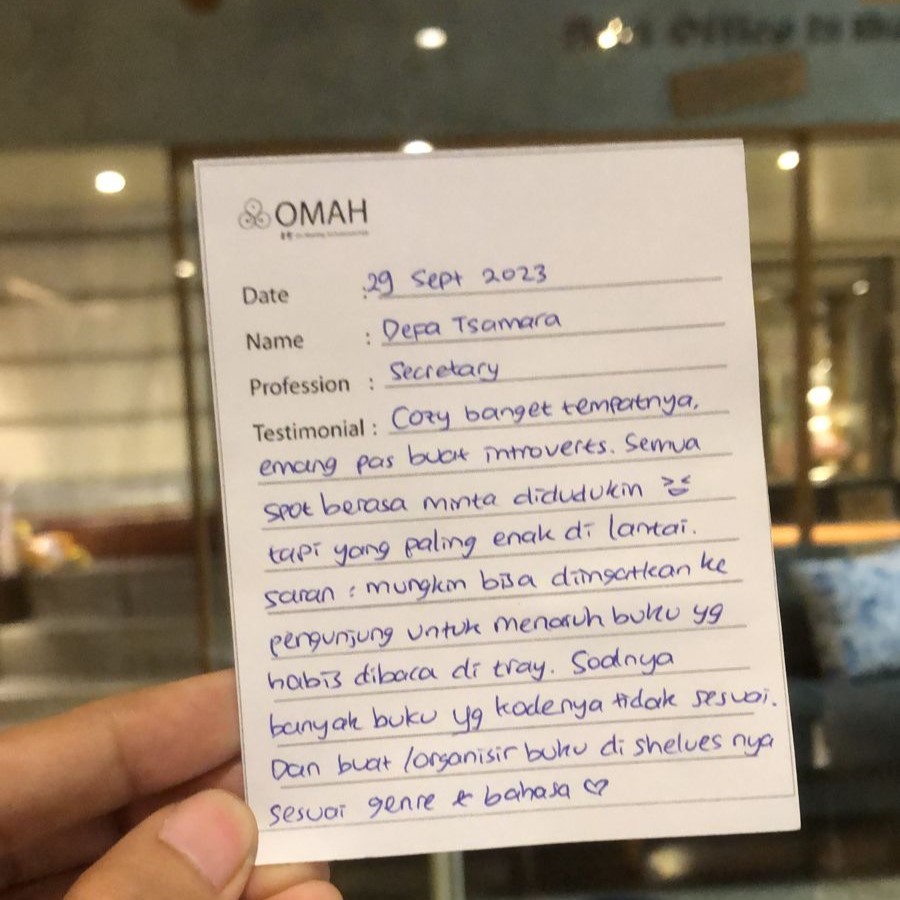 OMAH
Date : 29 Sept 2023
Name : Defa Tsamara
Profession : Secretary
Testimonial : Cozy banget tempatnya,
emang pas buat introverts. Semua
spot berasa minta didudukin
tapi yang paling enak di lantai.
saran : mungkin bisa diingatkan ke
pengunjung untuk menaruh buku yg
habis dibaca di tray. Soalnya
banyak buku yg kodenya tidak sesuai.
Dan buat /organisir buku di shelves nya
sesuai genre & bahasa ♡